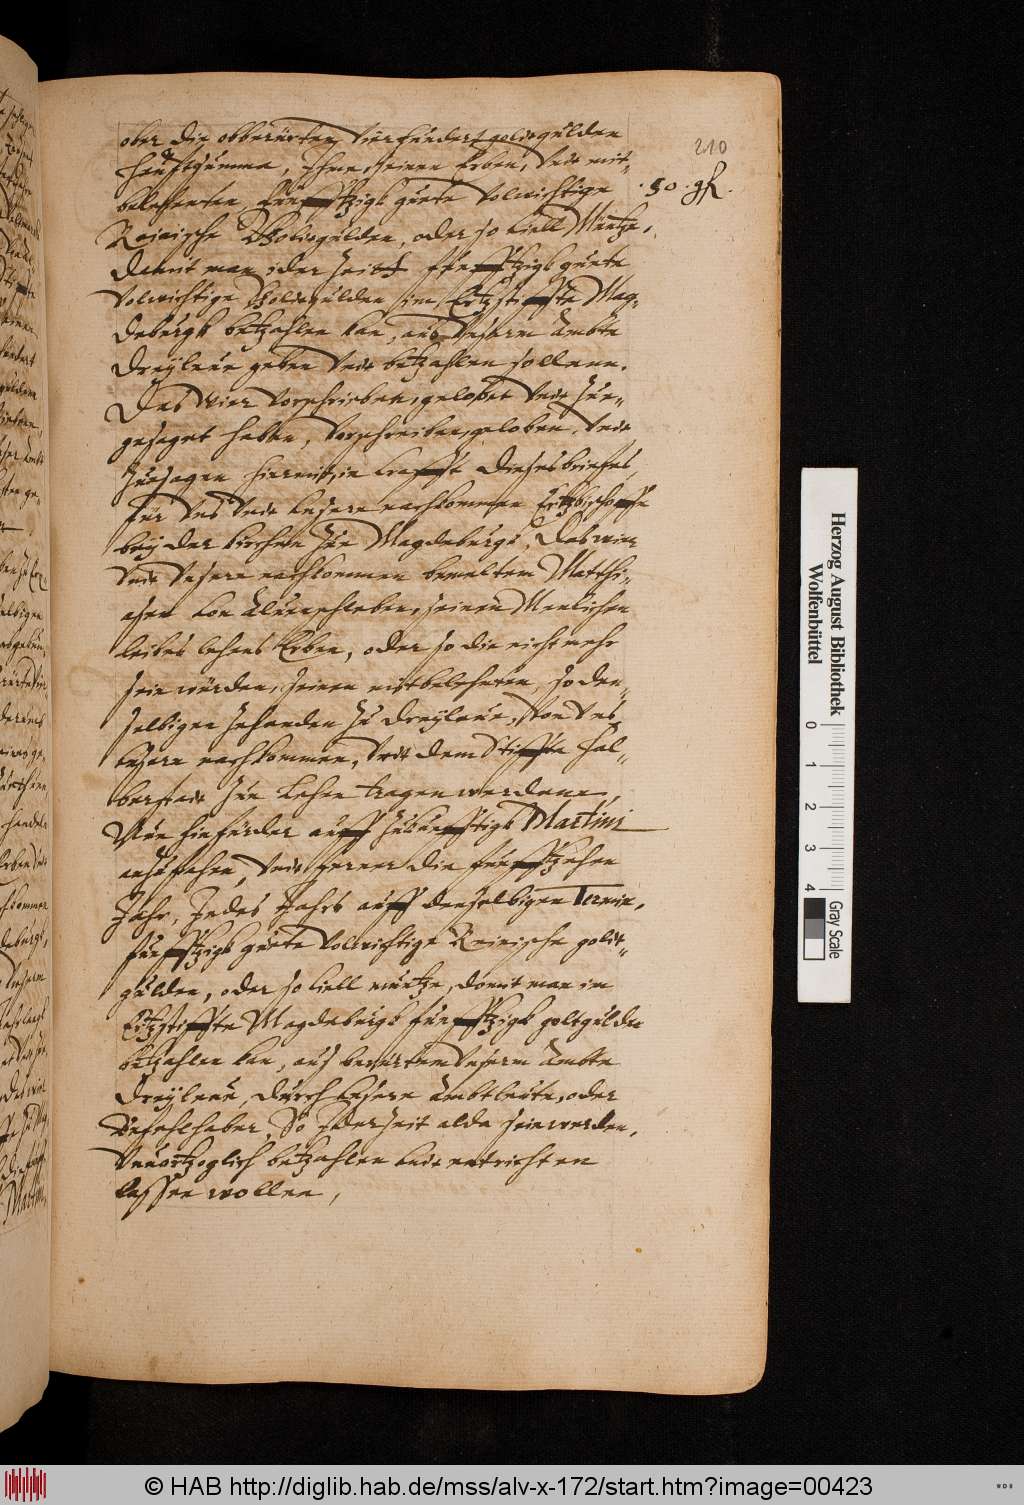 210
ober die obberurten Vierhundert goltgulden
heuptsumma, Ihme, seinen Erben, Vnd mit-
belehenten, funfftzigk guete volwichtige
.50. gfl.
Reinische Goltgulden, oder so viell Muntze,
damit man ider Zeitt funfftzigk guete
volwichtige Goltgulden im Ertzstiffte Mag-
deburgk betzahlen kan, aus Vnserm Ambte
Dreyleue geben Vnd betzahlen sollenn.
Das wier vorschrieben, gelobet Vnd zue-
gesaget haben, vorschreiben, geloben, Vnd
Zuesagen hiermit, in krafft dieses briefes,
für Vns Vnd Vnsere nachkommen Ertzbischoffe
bey der kirchen zue Magdeburgk, Das wier
Vnd Vnsere nachkommen bemeltem Matthi-
asen von Veltheim, seinen Menlichen
leibes lehens Erben, oder so die nicht mehr
sein würden, seinen mitbelehenten, so den-
selbigen Zehenden zu Dreyleue, von Vns
Vnsere nachkommen, Vnd dem Stiffte Hal-
berstadt zue Lehen tragen werdenn,
Nun hinfürder auff zukunfftigk Martini
anzufahen, Vnd ferner die funfftzehen
Jahr, Jedes Jahrs auff denselbigen Termin,
funfftzigk guete volwichtige Reinische golt-
gulden, oder so viell muntze, domit man im
Ertzstiffte Magdeburgk funfftzigk goltgulden
betzahlen kan, aus berurtem Vnserm Ambte
Dreyleue, durch Vnsere Ambtleute, oder
Befehlhaber, So Jderzeit alda sein werden,
Vnuortzoglich betzahlen Vnd entrichten
lassen wollen,
Herzog August Bibliothek
Wolfenbüttel
0 1 2 3 4
Gray Scale
© HAB http://diglib.hab.de/mss/alv-x-172/start.htm?image=00423